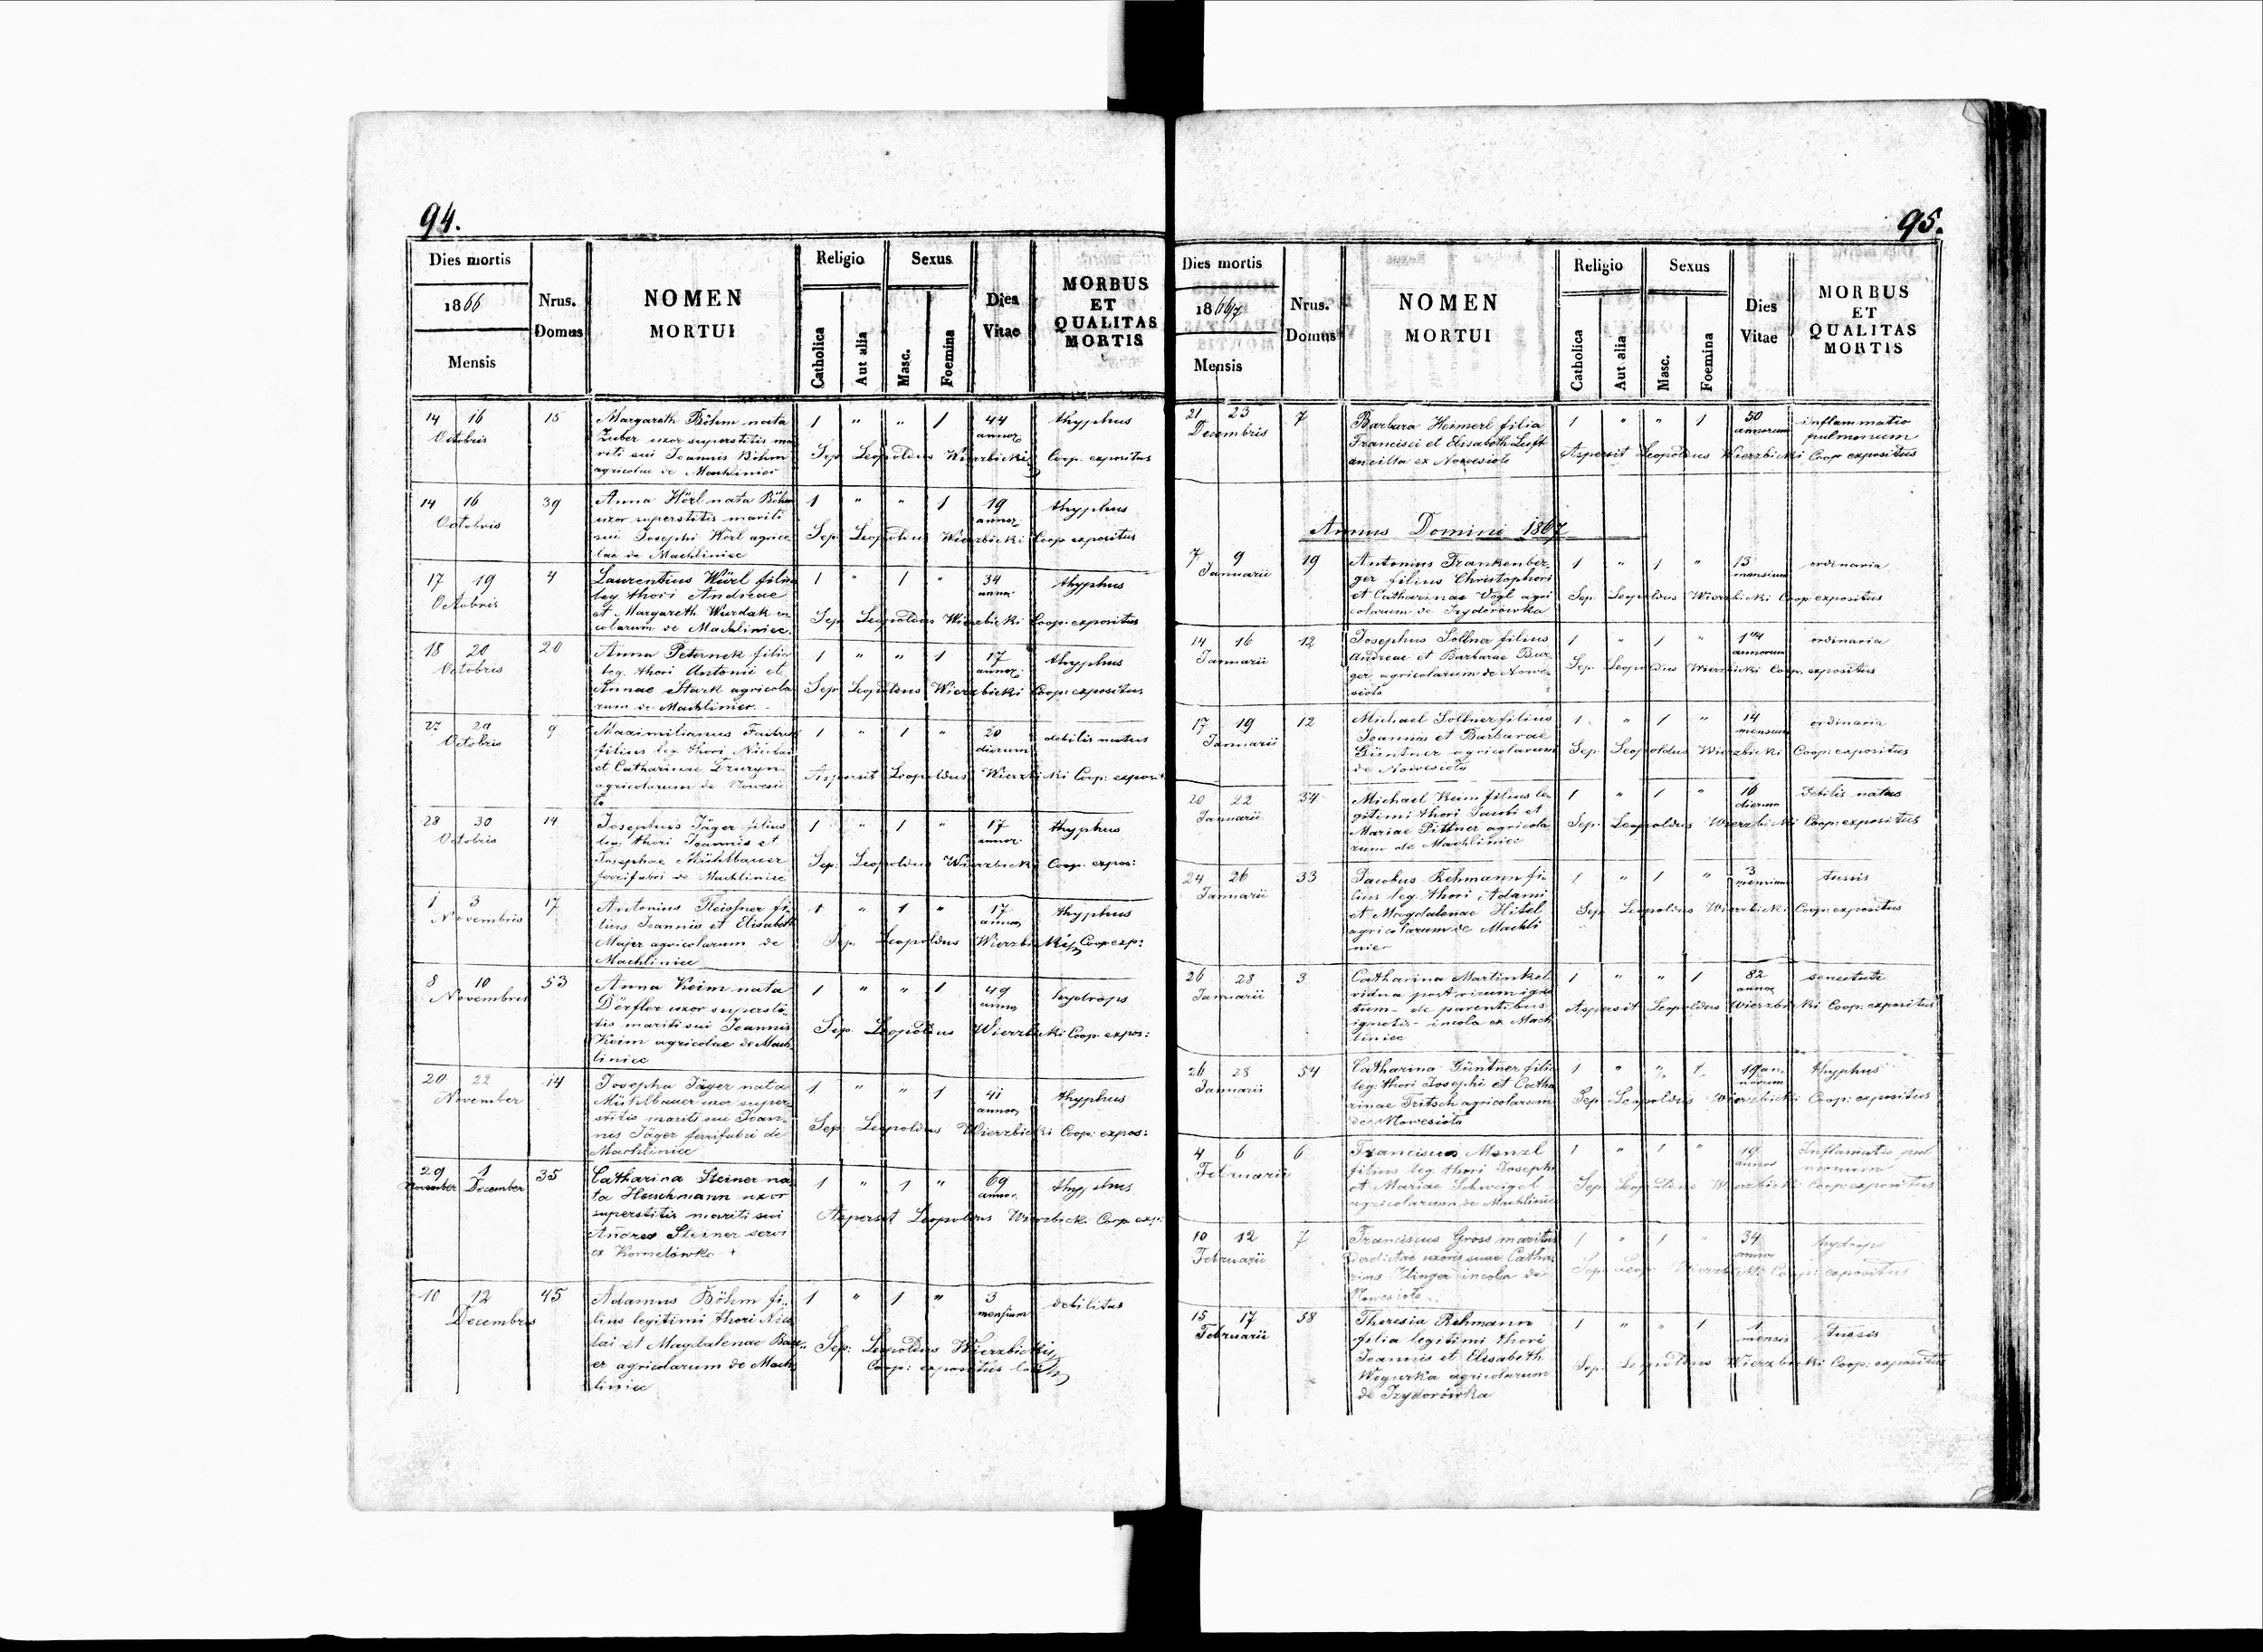 94.
Dies mortis
1866
Mensis
Nrus.
Domus
NOMEN
MORTUI
Religio
Catholica
Aut alia
Sexus
Masc.
Foemina
Dies
Vitae
MORBUS
ET
QUALITAS
MORTIS
14 16 15 Margareth Böhm nata 1 " " 1 44 thyphus
Octobris Zuber uxor superstitis ma annor.
riti sui Joannis Böhm Sep. Leopoldus Wierzbicki Coop. expositus
agricolae de Machliniec
14 16 39 Anna Hörl nata Böhm 1 " " 1 19 thyphus
Octobris uxor superstitis mariti annor.
sui Josephi Hörl agrico Sep. Leopoldus Wierzbicki Coop expositus
lae de Machliniec
17 19 4 Laurentius Würl filius 1 " 1 " 34 thyphus
Octobris leg. thori Andreae annor.
et Margareth Wurdak in Sep Leopoldus Wierzbicki Coop: expositus
colarum de Machliniec.
18 20 20 Anna Peternek filia 1 " " 1 17 thyphus
Octobris leg. thori Antonii et annor.
Annae Stark agricola Sep. Leopoldus Wierzbicki Coop: expositus
rum de Machliniec.
27 29 9 Maximilianus 1 " 1 " 20 debilis natus
Octobris filius leg. thori Nicolai dierum
et Catharinae Aspersit Leopoldus Wierzbicki Coop: exposit
agricolarum de Nowesio
lo
28 30 14 Josephus Jäger filius 1 " 1 " 17 thyphus
Octobris leg. thori Joannis et annor.
Josephae Mühlbauer Sep: Leopoldus Wierzbicki Coop. expos:
ferrifabri de Machliniec
1 3 17 Antonius Fleissner fi 1 " 1 " 17 thyphus
Novembris lius Joannis et Elisabeth annor.
Majer agricolarum de Sep. Leopoldus Wierzbicki Coop exp:
Machliniec
8 10 53 Anna Keim nata 1 " " 1 49 hydrops
Novembris Dörfler uxor supersti annor.
tis mariti sui Joannis Sep. Leopoldus Wierzbicki Coop. expos:
Keim agricolae de Mach
liniec
20 22 14 Josepha Jäger nata 1 " " 1 41 thyphus
November Mühlbauer uxor super annor.
stitis mariti sui Joan Sep: Leopoldus Wierzbicki Coop: expos:
nis Jäger ferrifabri de
Machliniec
29 1 35 Catharina Steiner na 1 " 1 " 69 thyphus
November December ta Heuschmann uxor annor.
superstitis mariti sui Aspersit Leopoldus Wierzbicki Coop exp:
Andrea Steiner servi
ex Kornelówka
10 12 45 Adamus Böhm fi 1 " 1 " 3 debilitas
Decembris lius legitimi thori Nico mensium
lai et Magdalenae Bau Sep: Leopoldus Wierzbicki
er agricolarum de Mach Coop: expositus
liniec
95.
Dies mortis
1866/7
Mensis
Nrus.
Domus
NOMEN
MORTUI
Religio
Catholica
Aut alia
Sexus
Masc.
Foemina
Dies
Vitae
MORBUS
ET
QUALITAS
MORTIS
21 23 7 Barbara Heimerl filia 1 " " 1 50 inflammatio
Decembris Francisci et Elisabeth Luft annorum pulmonum
ancilla ex Nowesioło Aspersit Leopoldus Wierzbicki Coop expositus
Annus Domini 1867
7 9 19 Antonius Frankenber 1 " 1 " 13 ordinaria
Januarii ger filius Christophori mensium
et Catharinae Vogl agri Sep. Leopoldus Wierzbicki Coop expositus
colarum de Izydorówka
14 16 12 Josephus Sollner filius 1 " 1 " ordinaria
Januarii Andreae et Barbarae Bur annorum
ger agricolarum de Nowe Sep. Leopoldus Wierzbicki Coop. expositus
sioło
17 19 12 Michael Sollner filius 1 " 1 " 14 ordinaria
Januarii Joannis et Barbarae mensium
Güntner agricolarum Sep. Leopoldus Wierzbicki Coop: expositus
de Nowesioło
20 22 34 Michael Keim filius le 1 " 1 " 16 debilis natus
Januarii gitimi thori Jacobi et dierum
Mariae Pittner agricola Sep. Leopoldus Wierzbicki Coop: expositus
rum de Machliniec
24 26 33 Jacobus Rehmann fi 1 " 1 " 3 tussis
Januarii lius leg. thori Adami mensium
et Magdalenae Hitel Sep. Leopoldus Wierzbicki Coop: expositus
agricolarum de Machli
niec
26 28 3 Catharina Martinkel 1 " " 1 82 senectute
Januarii vidua post virum igno annor.
tum - de parentibus Aspersit Leopoldus Wierzbicki Coop: expositus
ignotis - incola ex Mach
liniec
26 28 54 Catharina Güntner filia 1 " " 1 19 an thyphus
Januarii leg: thori Josephi et Catha norum
rinae Fritsch agricolarum Sep. Leopoldus Wierzbicki Coop: expositus
de Nowesioło
4 6 6 Franciscus Menzl 1 " 1 " 19 Inflamatio pul
Februarii filius leg. thori Josephi annor monum
et Mariae Schweigel Sep. Leopoldus Wierzbicki Coop: expositus
agricolarum de Machliniec
10 12 7 Franciscus Gross maritus 1 " 1 " 34 hydrops
Februarii derelictae uxoris suae Catha annor
rina Klinger incola de Sep. Leop. Wierzbicki Coop: expositus
Nowesioło
15 17 58 Theresia Rehmann 1 " " 1 1 tussis
Februarii filia legitimi thori mensis
Joannis et Elisabeth Sep. Leopoldus Wierzbicki Coop: expositus
Wegurka agricolarum
de Izydorówka